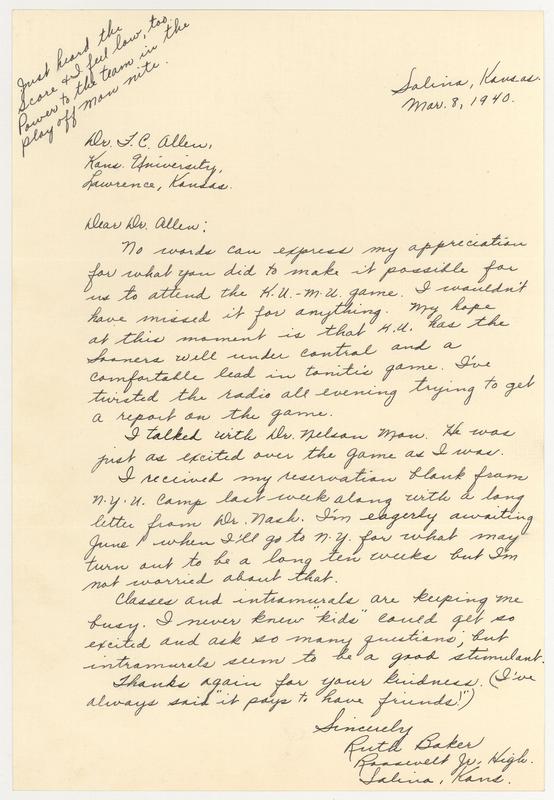 Just heard the
score & I feel low, too.
Power to the team in the
play off Mon nite.
Salina, Kansas.
Mar. 8, 1940.
Dr. F. C. Allen,
Kans. University,
Lawrence, Kansas.
Dear Dr. Allen:
No words can express my appreciation
for what you did to make it possible for
us to attend the K.U.-M.U. game. I wouldn't
have missed it for anything. My hope
at this moment is that K.U. has the
Sooners well under control and a
comfortable lead in tonite's game. I've
twisted the radio all evening trying to get
a report on the game.
I talked with Dr. Nelson Mon. He was
just as excited over the game as I was.
I received my reservation blank from
N.Y.U. Camp last week along with a long
letter from Dr. Nash. I'm eagerly awaiting
June 1 when I'll go to N.Y. for what may
turn out to be a long ten weeks but I'm
not worried about that.
Classes and intramurals are keeping me
busy. I never knew "kids" could get so
excited and ask so many questions; but
intramurals seem to be a good stimulant.
Thanks again for your kindness. (I've
always said "it pays to have friends!")
Sincerely
Ruth Baker
Roosevelt Jr. High.
Salina, Kans.